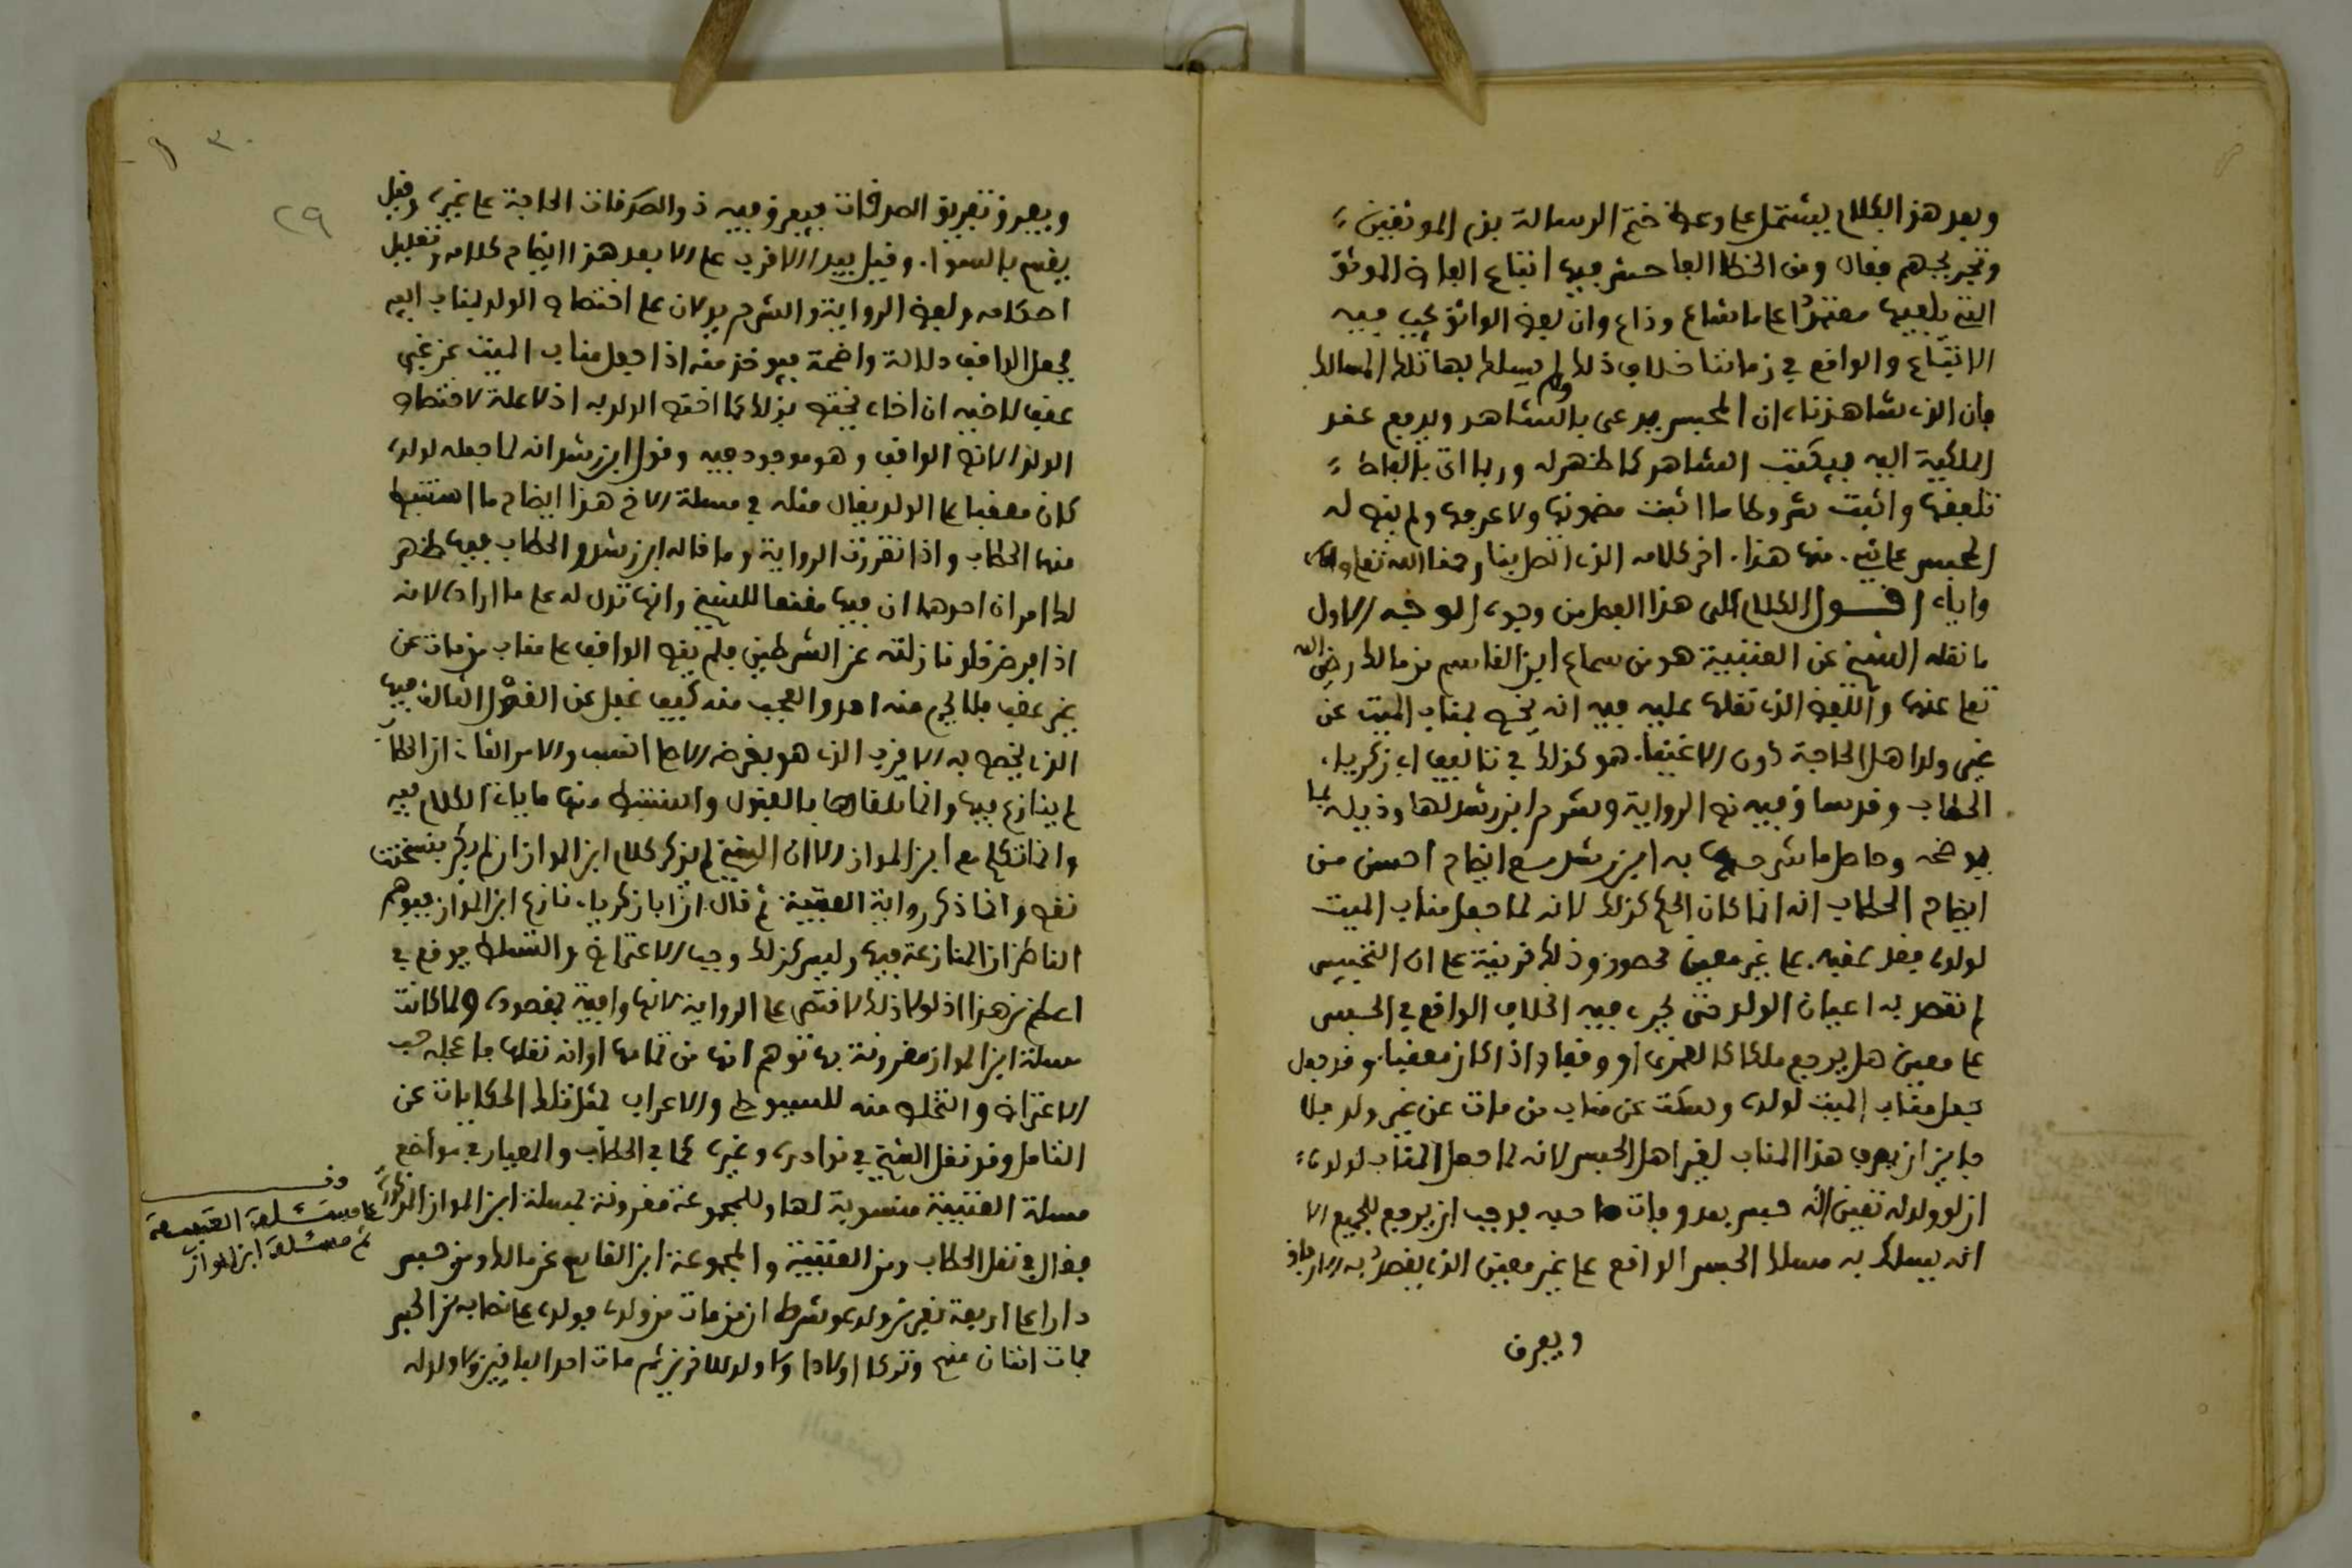 وبعد هذا الكلام يشتمل على وعظ ختم الرسالة بذم الموثقين
وتجريحهم فقال ومن الخطا الفاحش فيها اتباع الفاظ الموثق
التي يلفيها مقتصرا على ما شاع وذاع وان لفظ الواثق يجب فيه
الاتباع والواقع في زماننا خلاف ذلك ولم يسلك بها تلك المسالك
فان الذي شاهدناه ان المحبس يدعى بالشاهد ويدفع عقد
الملكية اليه فيكتب الشاهد كما ظهر له وربما اتى بالفاظ
تلقفها واثبت شروطا ما اثبت مضمونها ولا عرفها ولم ينص له
المحبس على شيء منها هذا اخر كلامه الذي اتصل بنا رحمنا الله تعالى
واياه اقول الكلام على هذا الفصل من وجوه الوجه الاول
ما نقله الشيخ عن العتبية هو من سماع ابن القاسم من مالك رضي الله
تعالى عنهما واللفظ الذي نقلها عليه فيه انه يخص بمناب الميت عن
غير ولد اهل الحاجة دون الاغنياء هو كذلك في تاليف ابي زكرياء
الحطاب وقد ساق فيه نص الرواية وشرح ابن رشد لها وذيله بما
يوضحه وحاصل ما شرحها به ابن رشد مع ايضاح احسن من
ايضاح الحطاب انه انما كان الحكم كذلك لانه لما جعل مناب الميت
لولده فقد عقبه على غير معين محصور وذلك قرينة على ان التحبيس
لم يقصد به اعيان الولد حتى يجري فيه الخلاف الواقع في الحبس
على معين هل يرجع ملكا كالعمرى او وقفا واذا كان معقبا وقد جعل
جعل مناب الميت لولده وسكت عن مناب من مات عن غير ولد فلا
جايز ان يصرف هذا المناب لغير اهل الحبس لانه لما جعل المناب لولده
ان لو ولد له تعين انه حبس بعد وفات صاحبه فوجب ان يرجع للجميع الا
انه يسلك به مسلك الحبس الواقع على غير معين الذي يقصد به الارفاق
ويصرف
٣٠
٢٩
ويصرف تفريق الصدقات فيصرف فيه ذو الصدقات الحاجة على غيره وقيل
يقسم بالسواء وقيل يبدا الاقرب على الابعد هذا ايضاح كلامه وتعليل
احكامه ولفظ الرواية والشرح يدلان على اختصاص الولد بمناب ابيه
بجعل الواقف دلالة واضحة فيوخذ منه اذا جعل مناب الميت عن غير
عقب لاخيه ان اخاه يختص بذلك كما اختص الولد به اذ لا علة لاختصاص
الولد الا نص الواقف وهو موجود فيه وقول ابن رشد انه لما جعله لولده
كان معقبا على الولد يقال مثله في مسئلة الاخ هذا ايضاح ما استنبط
منها الحطاب واذا تقررت الرواية وما قاله ابن رشد والحطاب فيها ظهر
لك امران احدهما ان فيها مقنعا للشيخ وانها تدل له على ما اراده لانه
اذا فرض خلو نازلته عن الشرطين فلم ينص الواقف على مناب من مات عن
غير عقب فلا يخرج منه احد والعجب منه كيف غفل عن القول الثالث فيها
الذي يخص به الاقرب الذي هو بغرض الامام انسب والامر الثاني ان الحطاب
لم ينازع فيها وانما تلقاها بالقبول واستنبط منها ما ياتي الكلام فيه
وانما تكلم مع ابن المواز الا ان الشيخ لم يذكر كلام ابن المواز ان لم يكن بنسختنا
نقص وانما ذكر رواية العتبية ثم قال ان ابا زكرياء نازع ابن المواز فيوهم
الناظر ان المنازعة فيها وليس كذلك وجب الاعتراض والتسلط فوقع في
اعظم من هذا اذ لولا ذلك لاقتصر على الرواية لانها وافية بمقصوده ولما كانت
مسئلة ابن المواز مقرونة بها توهم انها من تمامها او انه نقلها فاعجله حب
الاعتراض والتخلص منه للسيوطي والاعراب بمثل تلك الحكايات عن
التامل وقد نقل الشيخ في نوادره وغيره كما في الحطاب والمعيار في مواضع
مسئلة العتبية منسوبة لها وللمجموعة مقرونة بمسئلة ابن المواز المذكورة
فقال في نقل الحطاب ومن العتبية والمجموعة ابن القاسم عن مالك ومن حبس
دارا على اربعة نفر من ولده وشرط ان من مات من ولده فولده على نصابه من الحبس
فمات اثنان منهم وتركا اولادا ولا ولد للاخرين ثم مات احد الباقين ولا ولد له
قف
على مسئلة العتبية
ثم مسئلة ابن المواز